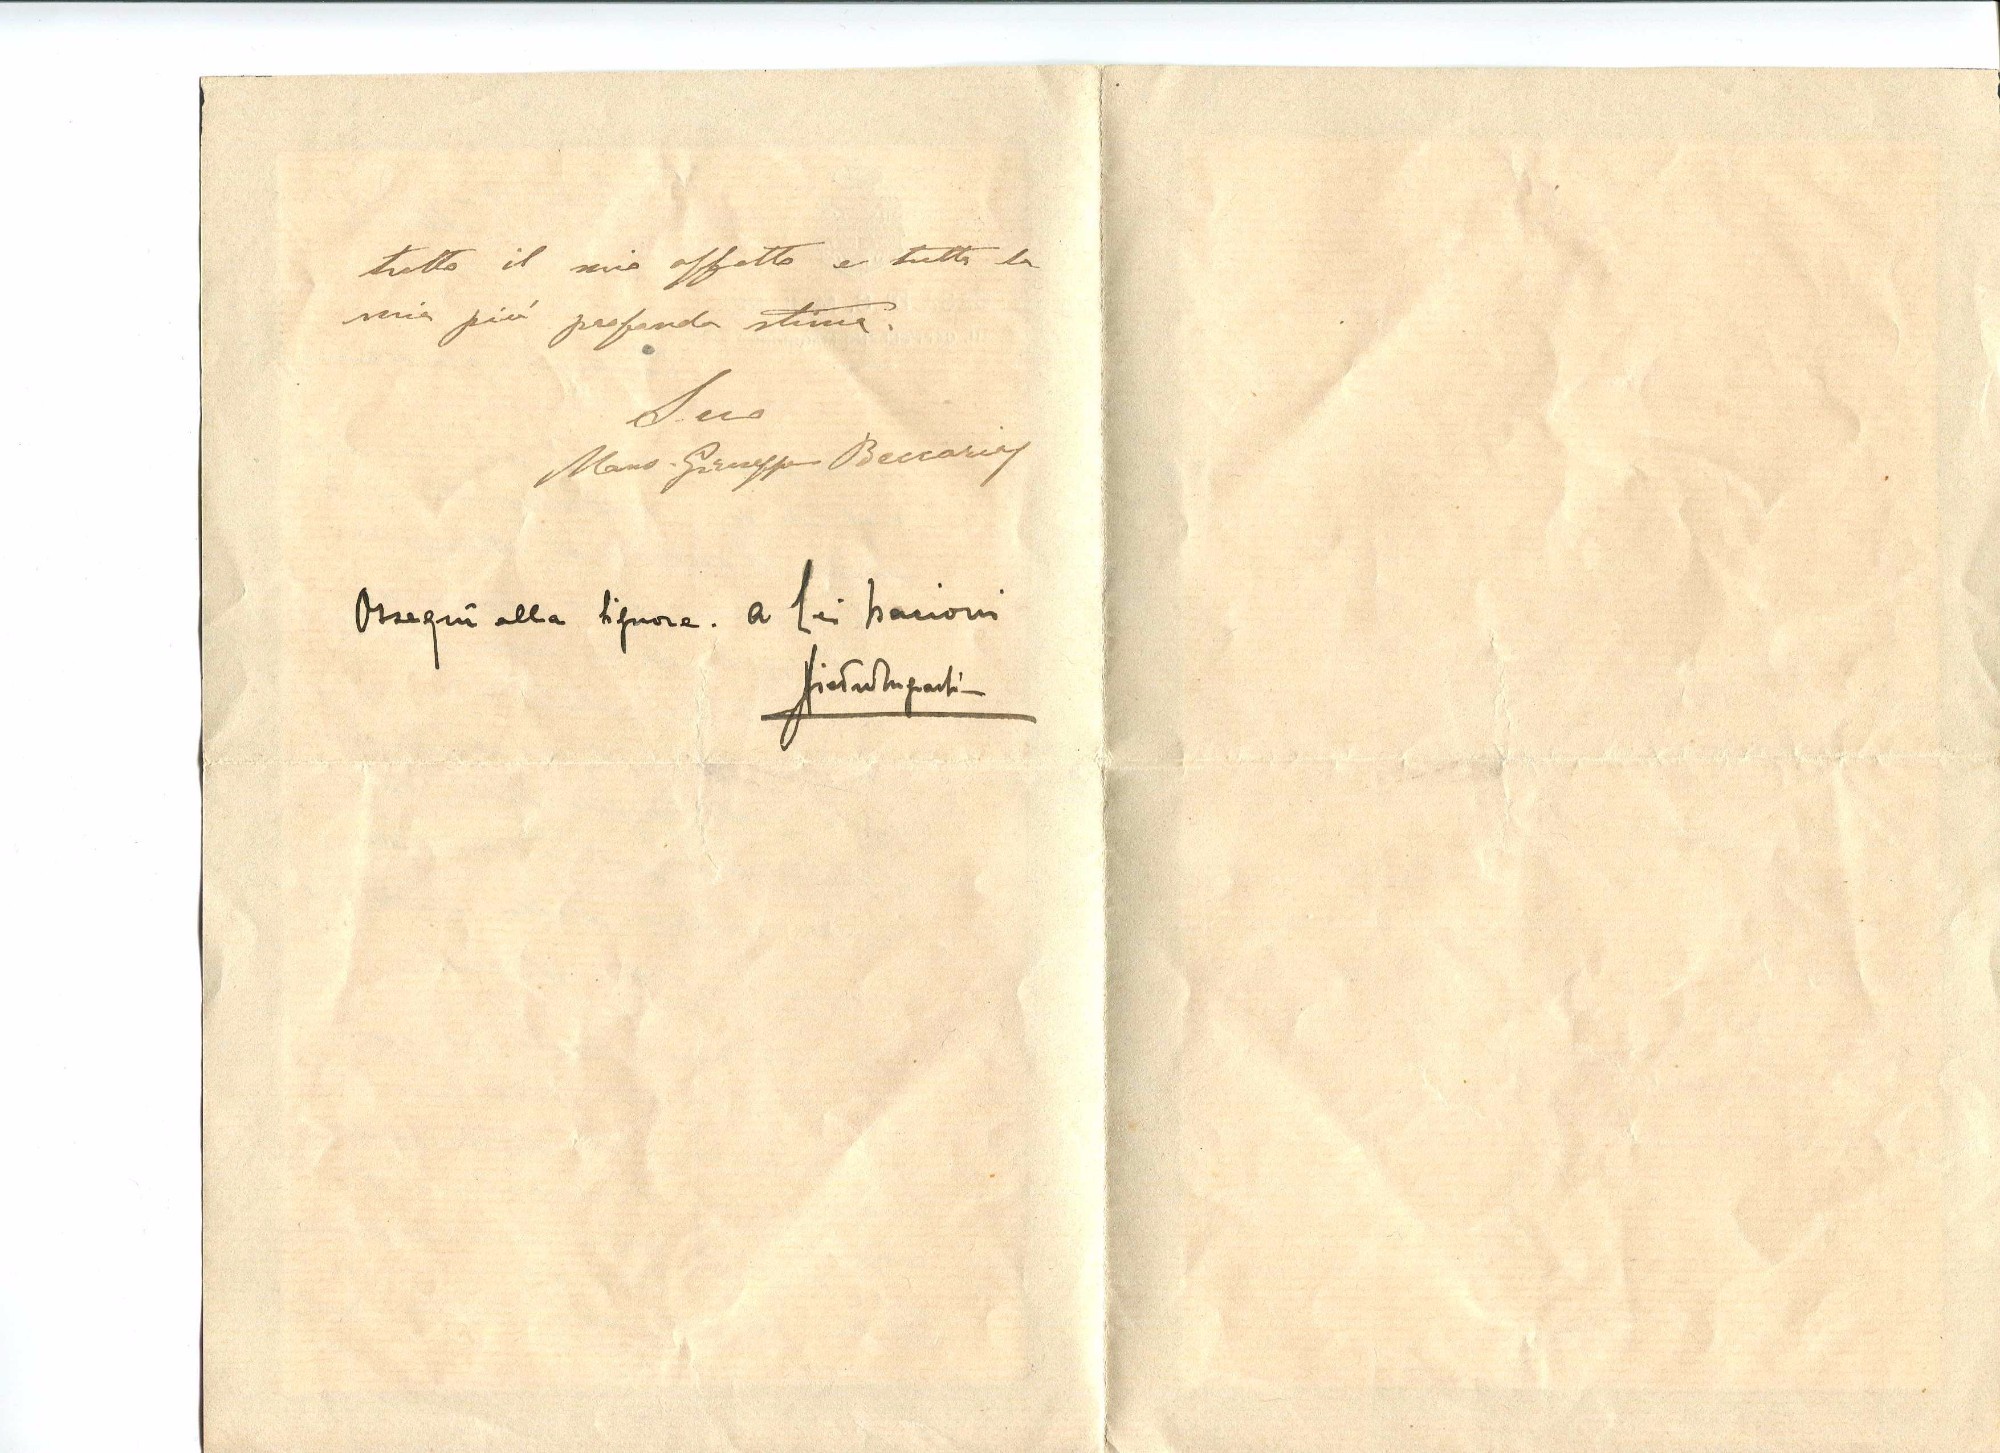 tutto il mio affetto e tutta la
mia più profonda stima.
Suo
Giuseppe Beccaria
Ossequi alla Signora. a Lei bacioni